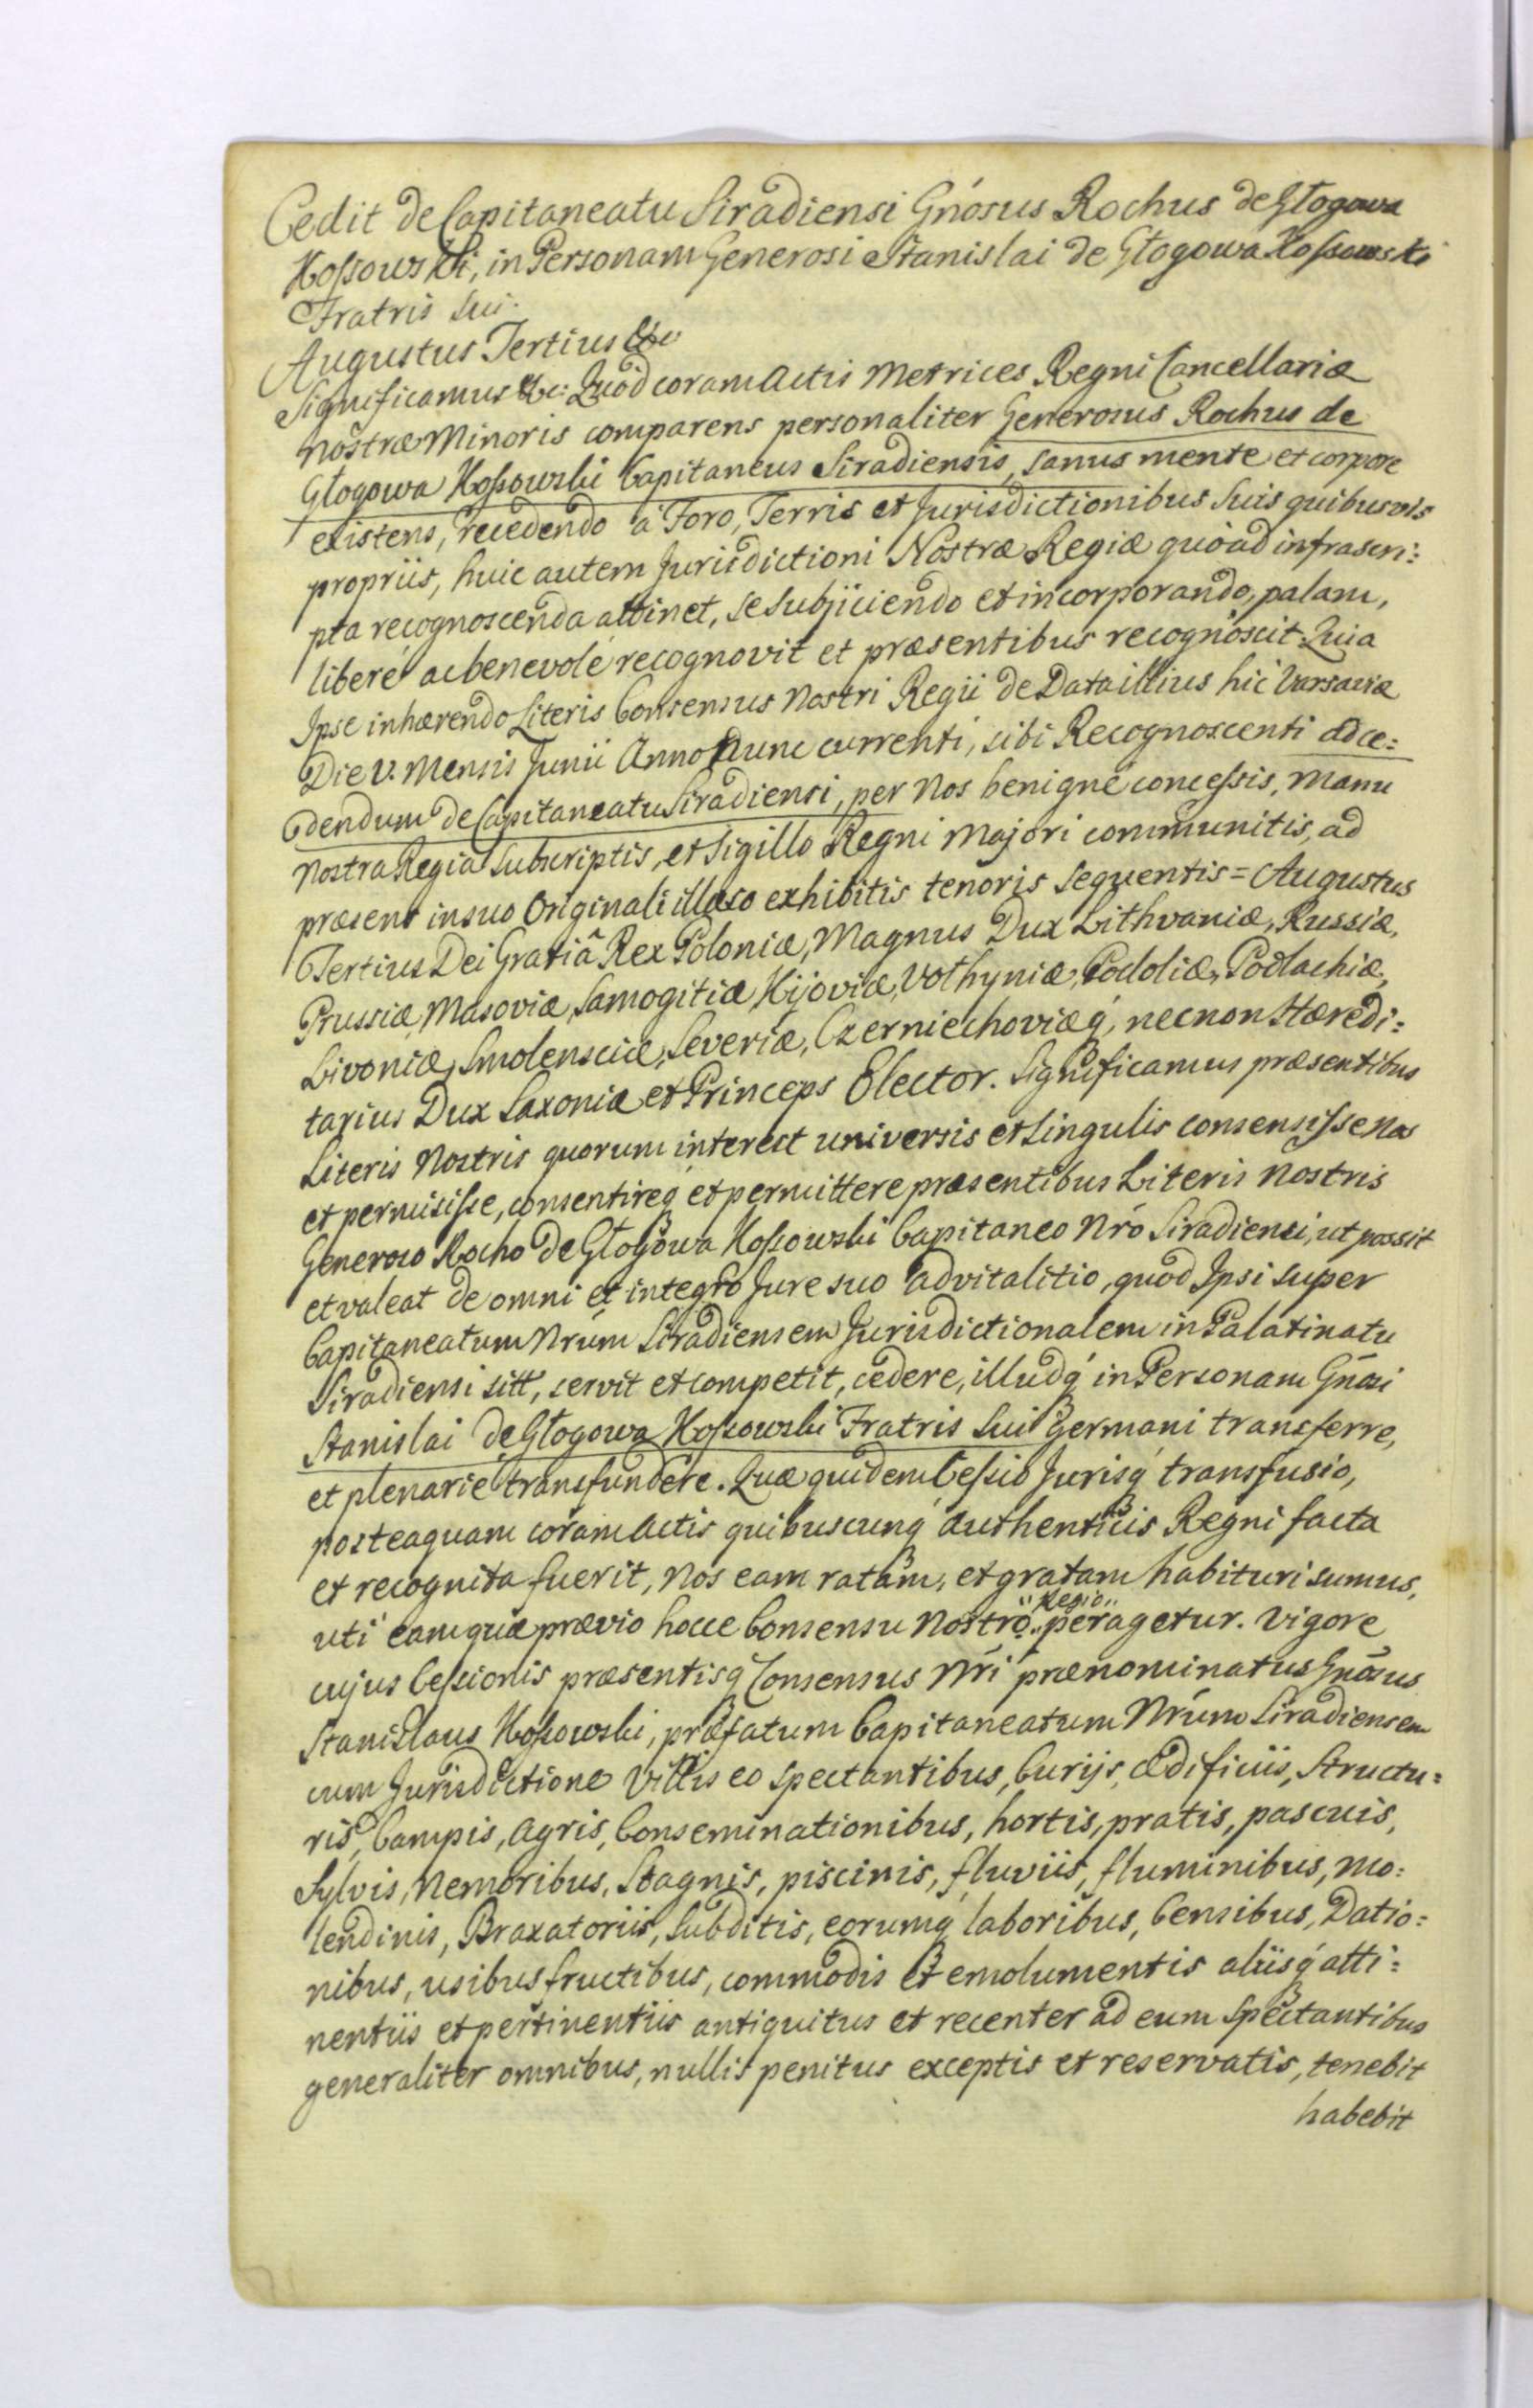 Cedit de Capitaneatu Siradiensi Gnósus Rochus de Głogowa
Koſsowski, in Personam Generosi Stanislai de Głogowa Koſsowski
Fratris sui.
Augustus Tertius &c
Significamus &c: Quòd coram Actis Metrices Regni Cancellariæ
Nostræ Minoris comparens personaliter Generosus Rochus de
Głogowa Koſsowski Capitaneus Siradiensis, sanus mente et corpore
existens, recedendo à Foro, Terris et Jurisdictionibus suis quibusvis
propriis, huic autem Jurisdictioni Nostræ Regiæ quòad infrascri:
pta recognoscenda attinet, se subjiciendo et incorporando, palam,
liberè ac benevolè recognovit et præsentibus recognoscit: Quia
Ipse inhærendo Literis Consensus Nostri Regii de Data illius hic Varsaviæ
Die V. Mensis Junii Anno nunc currenti, sibi Recognoscenti ad ce:
dendum de Capitaneatu Siradiensi, per Nos benignè conceſsis, Manu
Nostra Regia subscriptis, et Sigillo Regni Majori communitis, ad
præsens in suo Originali illæso exhibitis tenoris sequentis = Augustus
Tertius Dei Gratiâ Rex Poloniæ, Magnus Dux Lithvaniæ, Russiæ,
Prussiæ, Masoviæ, Samogitiæ, Kijoviæ, Volhyniæ, Podoliæ, Podlachiæ,
Livoniæ, Smolensciæ, Severiæ, Czerniechoviæq́, necnon Hæredi:
tarius Dux Saxoniæ et Princeps Elector. Significamus præsentibus
Literis Nostris quorum interest universis et singulis consensiſse Nos
et permisiſse, consentireq́ et permittere præsentibus Literis Nostris
Generoso Rocho de Głogowa Koſsowski Capitaneo Nŕo Siradiensi, ut possit
et valeat de omni et integro Jure suo advitalitio, quod Ipsi super
Capitaneatum Nŕum Siradiensem Jurisdictionalem in Palatinatu
Siradiensi sitt, servit et competit, cedere, illudq́ in Personam Gńosi
Stanislai de Głogowa Koſsowski Fratris sui germani transferre,
et plenarie transfundere. Quæ quidem Ceſsio Jurisq́ transfusio,
posteaquam coram Actis quibuscunq́ authenticis Regni facta
et recognita fuerit, Nos eam ratam, et gratam habituri sumus,
uti eam quæ prævio hocce Consensu Nostro "Regio" peragetur. Vigore
cujus Ceſsionis præsentisq́ Consensus Nŕi prænominatus Gnósus
Stanislaus Koſsowski, præfatum Capitaneatum Nŕum Siradiensem
cum Jurisdictione Villis eo spectantibus, Curijs, ædificiis, Structu=
ris, Campis, Agris, Conseminationibus, hortis, pratis, pascuis,
Sylvis, Nemoribus, Stagnis, piscinis, fluviis, fluminibus, mo:
lendinis, Braxatoriis, Subditis, eorumq́ laboribus, Censibus, Datio=
nibus, usibusfructibus, commodis et emolumentis aliisq́ atti=
nentiis et pertinentiis antiquitus et recenter ad eum spectantibus
generaliter omnibus, nullis penitus exceptis et reservatis, tenebit
habebit